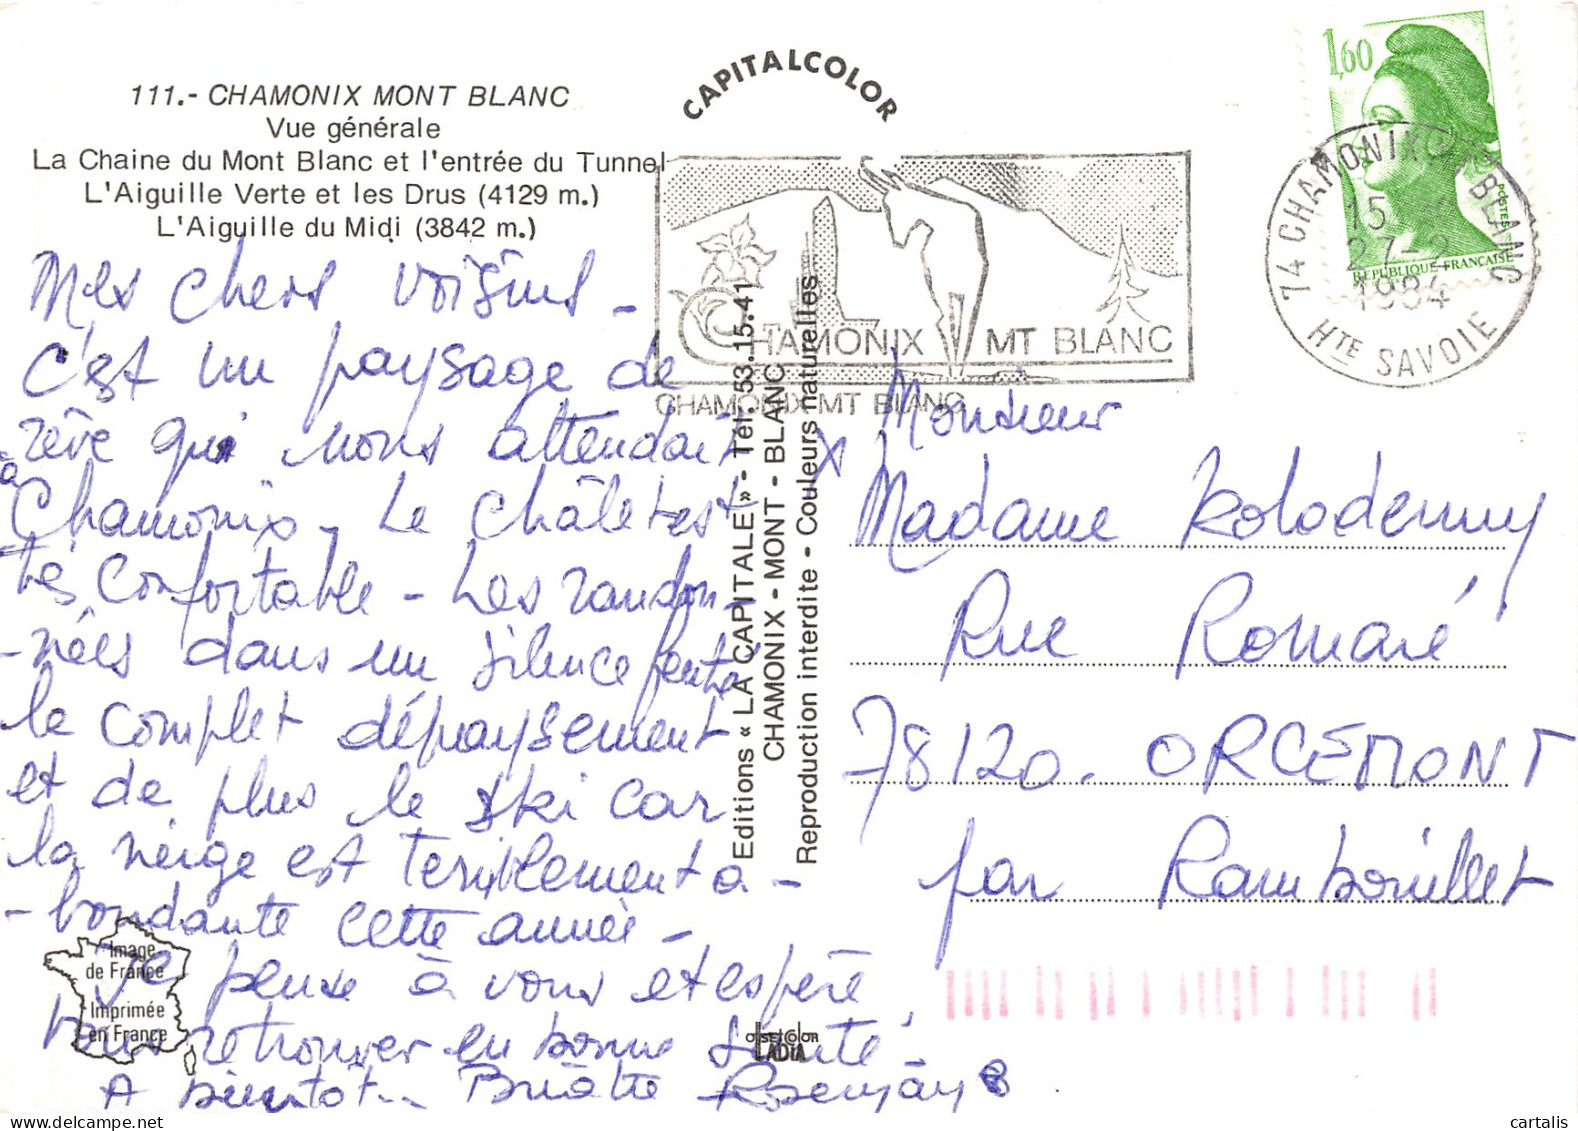 111.- CHAMONIX MONT BLANC
Vue générale
La Chaine du Mont Blanc et l'entrée du Tunnel
L'Aiguille Verte et les Drus (4129 m.)
L'Aiguille du Midi (3842 m.)
Mes chers voisins -
c'est un paysage de
rêve qui nous attendait
à Chamonix - Le châlet est
très confortable - Les randon-
-nées dans un silence feutré
le complet dépaysement
et de plus le ski car
la neige est terriblement a-
-bondante cette année -
Je pense à vous et espère
vous retrouver en bonne santé -
A bientôt..
CAPITALCOLOR
CHAMONIX MT BLANC
CHAMONIX MT BLANC
Editions « LA CAPITALE » - Tél. 53.15.41
CHAMONIX - MONT - BLANC
Reproduction interdite - Couleurs naturelles
1,60
POSTES
REPUBLIQUE FRANÇAISE
74 CHAMONIX MT BLANC
15
27-2
1984
HTE SAVOIE
Monsieur
Madame Kolodenny
Rue Romaré
78120. ORCEMONT
par Rambouillet
Image
de France
Imprimée
en France
OFFSETCOLOR
IADIA
cartalis